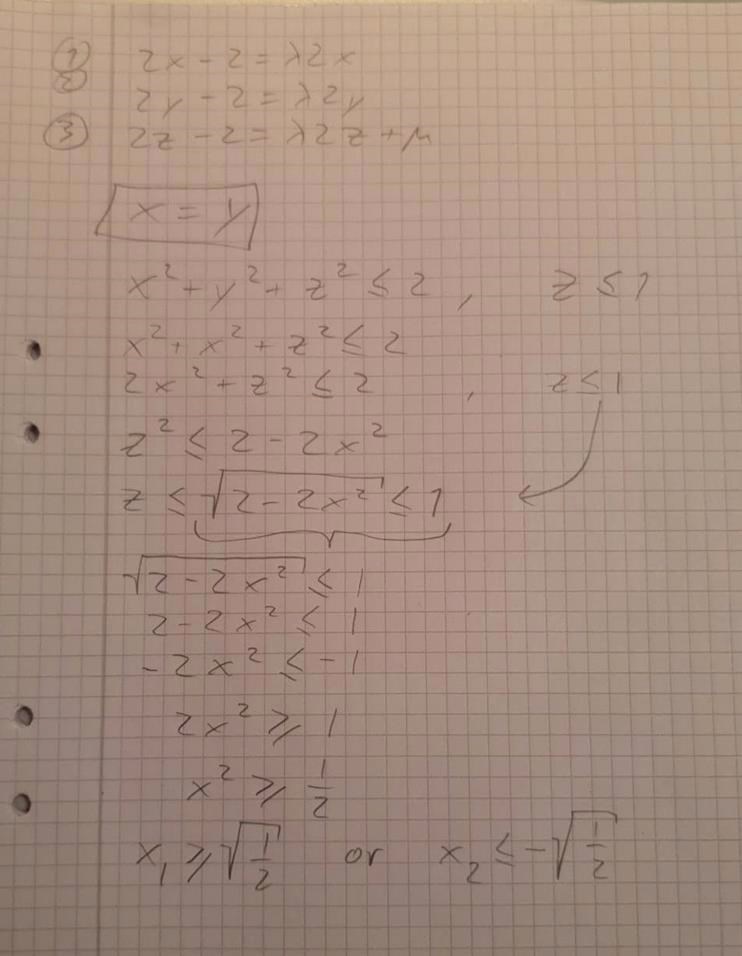 ① 2x - 2 = λ2x
② 2y - 2 = λ2y
③ 2z - 2 = λ2z + μ
x = y
x² + y² + z² ≤ 2 , z ≤ 1
x² + x² + z² ≤ 2
2x² + z² ≤ 2 , z ≤ 1
z² ≤ 2 - 2x²
z ≤ √(2 - 2x²) ≤ 1
√(2 - 2x²) ≤ 1
2 - 2x² ≤ 1
-2x² ≤ -1
2x² ≥ 1
x² ≥ 1/2
x₁ ≥ √(1/2) or x₂ ≤ -√(1/2)